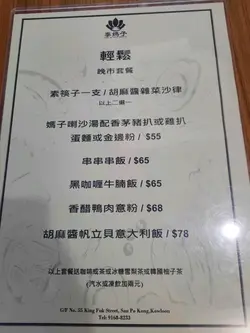 輕鬆
晚市套餐
素筷子一支/胡麻醬雜菜沙律
以上二選一
媽子喇沙湯配香茅豬扒或雞扒
蛋麵或金邊粉 / $55
串串串飯 / $65
黑咖喱牛腩飯 / $65
香醋鴨肉意粉 / $68
胡麻醬帆立貝意大利飯 / $78
以上套餐送咖啡或茶或冰糖雪梨茶或韓國柚子茶
(汽水或凍飲加兩元)
G/F No. 55 King Fuk Street, San Po Kong, Kowloon
Tel: 9168-8233